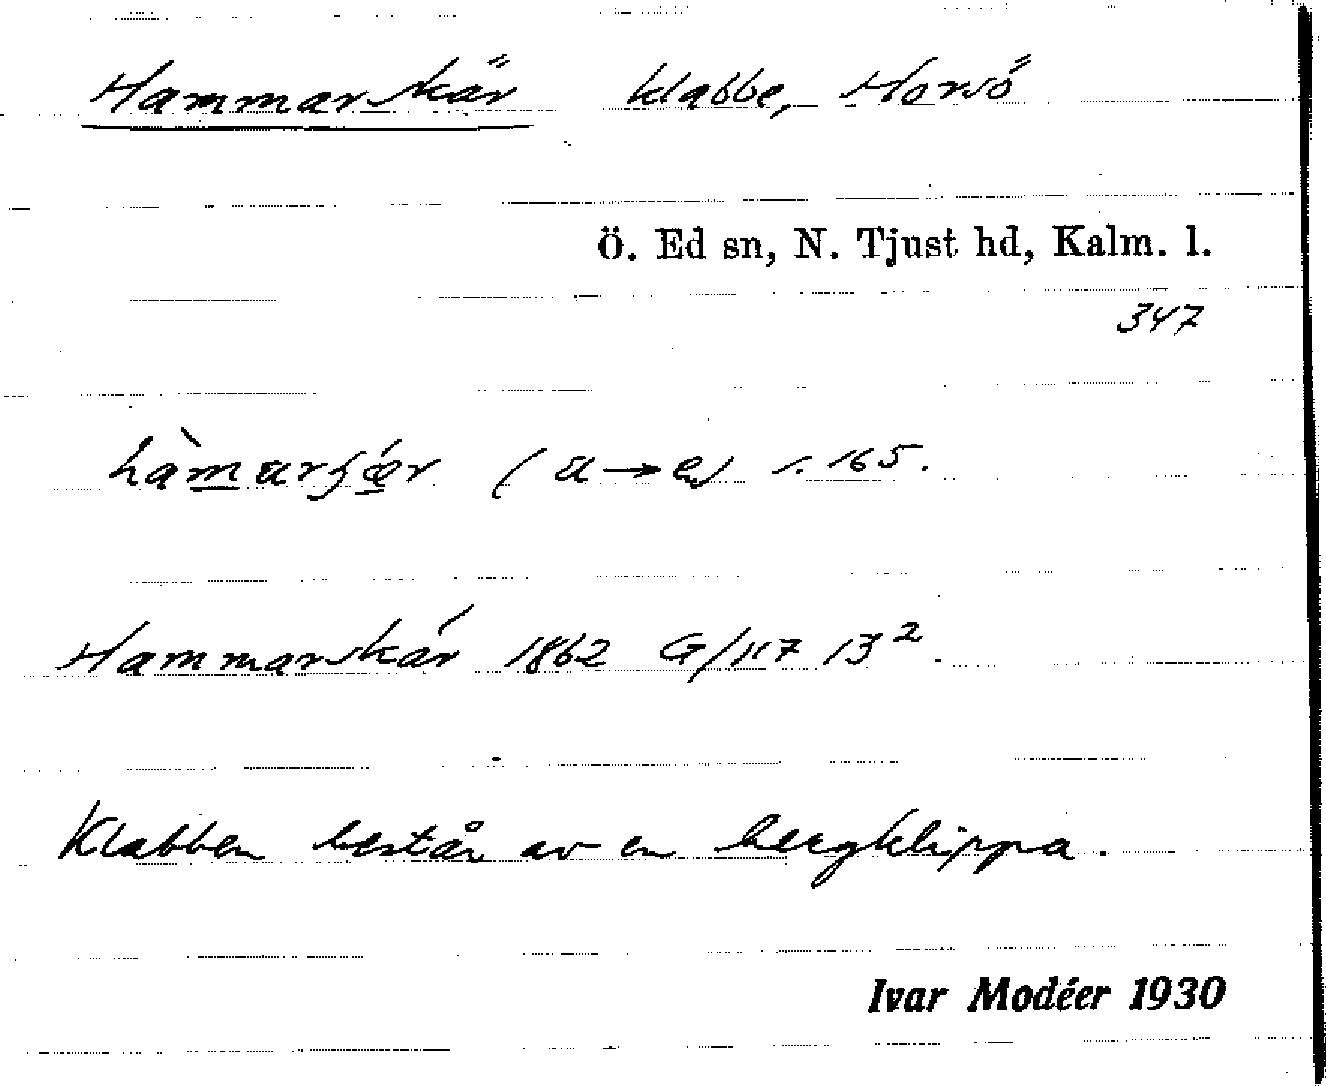 Hammarskär klabbe, Horsö
Ö. Ed sn, N. Tjust hd, Kalm. l.
347
(a→e) s. 165.
Hammarskär 1862 G/117 13²
Klabben består av en bergklippa.
Ivar Modéer 1930